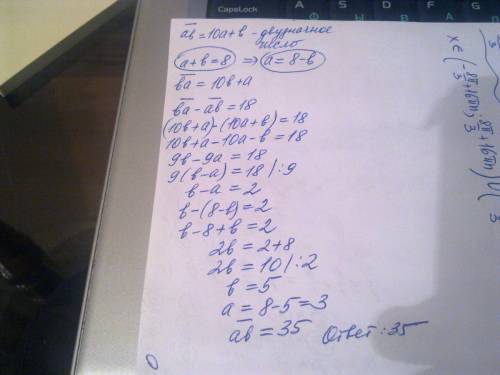 CapsLock
A
S
Ф
Ы
a̅b̅ = 10a+b - двузначное
число
a+b=8 ⇒ a=8-b
b̅a̅ = 10b+a
b̅a̅ - a̅b̅ = 18
(10b+a)-(10a+b)=18
10b+a-10a-b=18
9b-9a=18
9(b-a)=18 | :9
b-a=2
b-(8-b)=2
b-8+b=2
2b=2+8
2b=10 | :2
b=5
a=8-5=3
a̅b̅=35 Ответ: 35